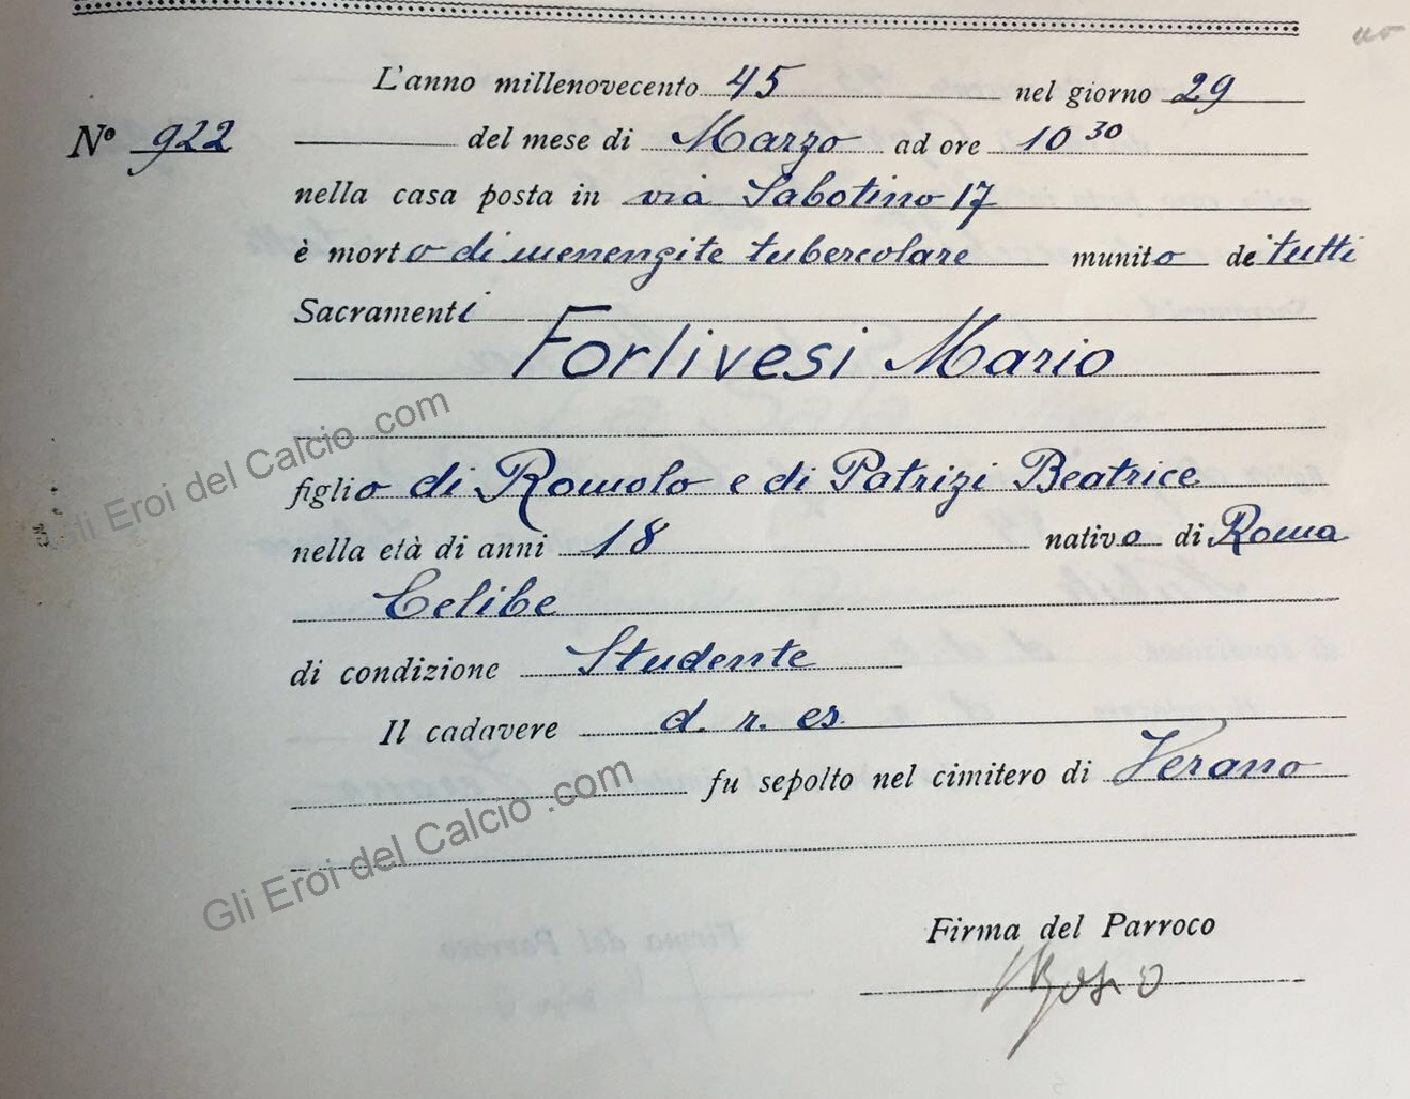 L'anno millenovecento 45 nel giorno 29
Nº 922 del mese di Marzo ad ore 10 30
nella casa posta in via Sabotino 17
è morto di menengite tubercolare munito de' tutti
Sacramenti
Forlivesi Mario
figlio di Romolo e di Patrizi Beatrice
nella età di anni 18 nativo di Roma
Celibe
di condizione Studente
Il cadavere d. r. es.
fu sepolto nel cimitero di Verano
Firma del Parroco
Gli Eroi del Calcio .com
Gli Eroi del Calcio .com